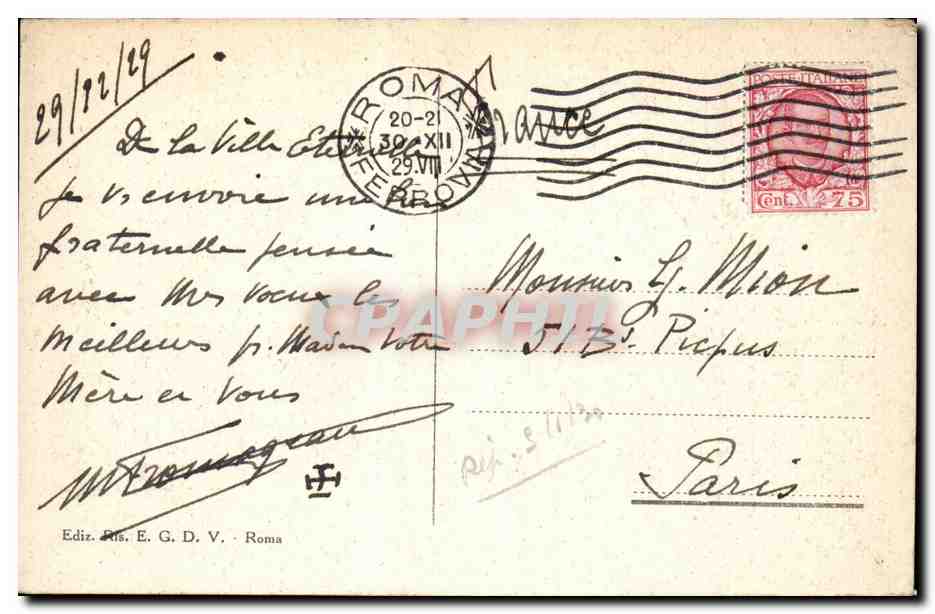 29/12/29
De la Ville Eternelle
je vs envoie une
fraternelle pensée
avec mes voeux les
meilleurs pr. Madame Votre
Mère et Vous
Ediz. Ris. E. G. D. V. - Roma
ROMA FERROVIA
20-21
30 XII
29.VIII
France
POSTE ITALIANE
Cent. 75
Monsieur G. Mion
51 Bis Picpus
Paris
Rép. 9/1/30
CPAPHIL